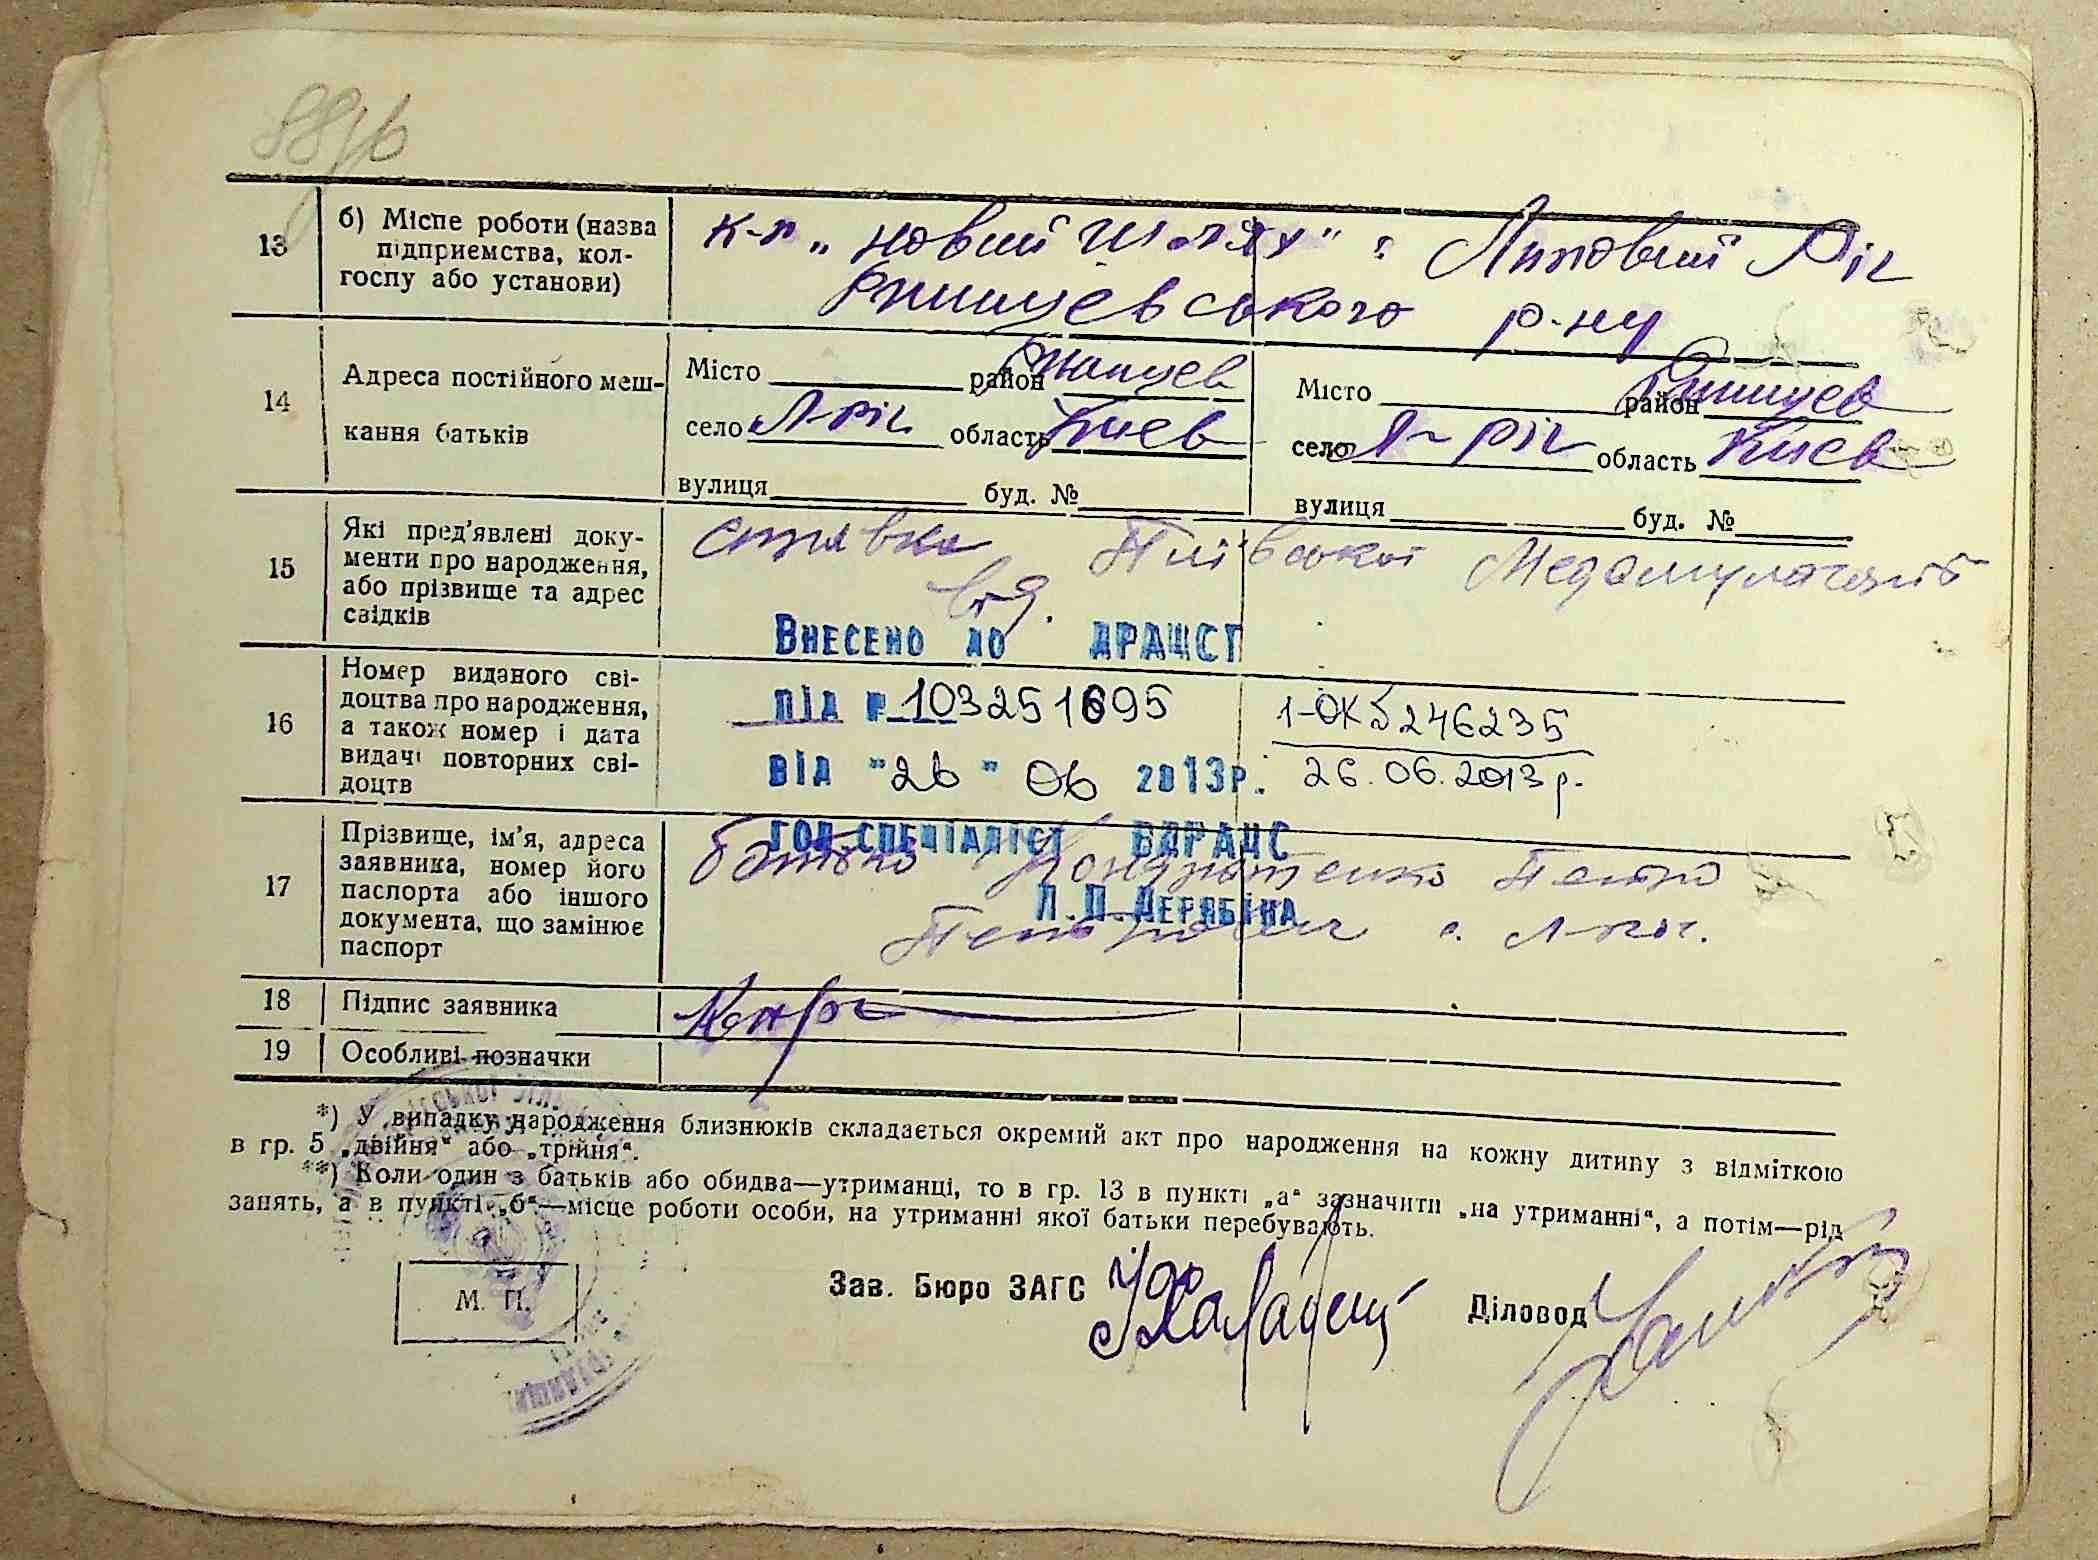 13
б) Місце роботи (назва
підприемства, кол-
госпу або установи)
к-п „Новий шлях" с Липовий Ріг
Ржищевського р-ну
14
Адреса постійного меш-
кання батьків
Місто район Ржищев
село Л-ріг область Киев
вулиця буд. №
Місто район Ржищев
село Л-ріг область Киев
вулиця буд. №
15
Які пред'явлені доку-
менти про народження,
або прізвище та адрес
свідків
справка Пиївської
від.
16
Номер виданого сві-
доцтва про народження,
а також номер і дата
видачі повторних сві-
доцтв
Внесено до ДРАЦСГ
під № 103251695
від "26" 06 2013р.
1-ОК №246235
26.06.2013р.
17
Прізвище, ім'я, адреса
заявника, номер його
паспорта або іншого
документа, що замінює
паспорт
гол.спеціаліст ВДРАЦС
Л.П.Дерябіна
батько Кондратенко Петро
Петрович с. Л-ріг.
18
Підпис заявника
19
Особливі позначки
*) У випадку народження близнюків складається окремий акт про народження на кожну дитину з відміткою
в гр. 5 „двійня" або „трійня".
**) Коли один з батьків або обидва—утриманці, то в гр. 13 в пункті „а" зазначити „на утриманні", а потім—рід
занять, а в пункті „б"—місце роботи особи, на утриманні якої батьки перебувають.
М. П.
Зав. Бюро ЗАГС
Діловод